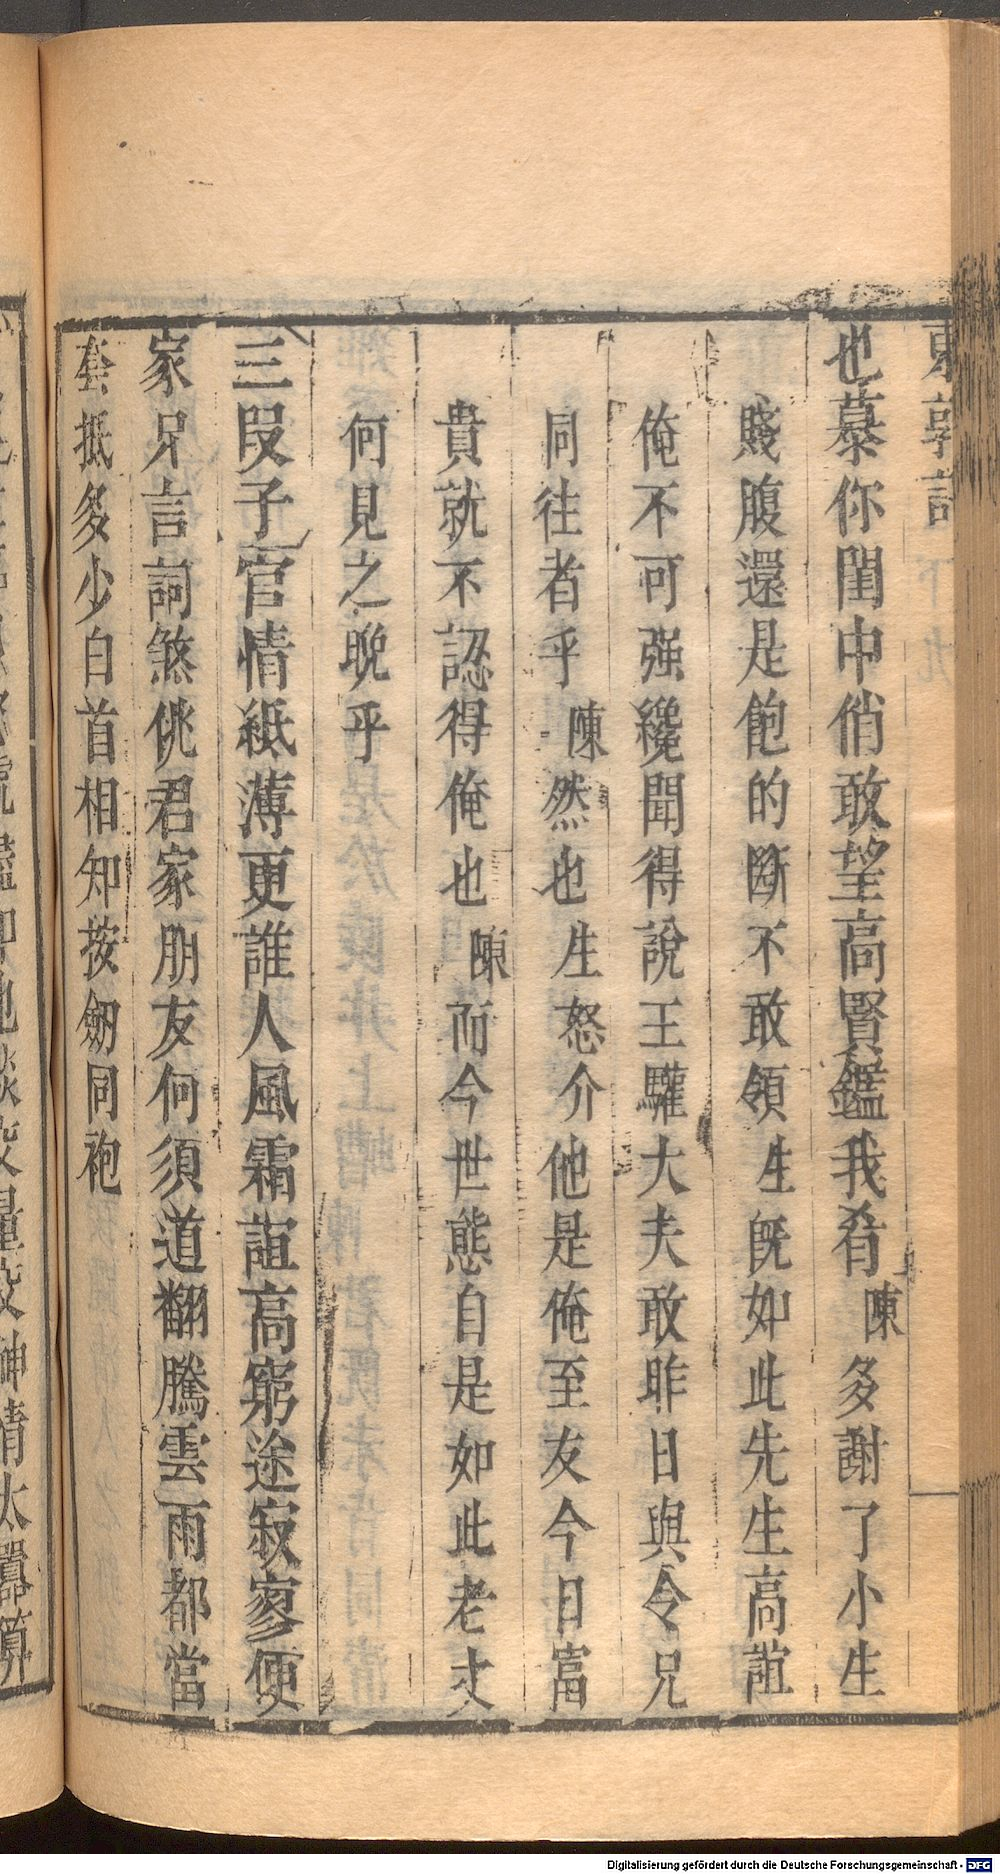 東郭記
也慕你閨中俏敢望高賢鑑我肴陳多謝了小生
賤腹還是飽的斷不敢領生旣如此先生高誼
俺不可强纔聞得說王驩大夫敢昨日與令兄
同往者乎陳然也生怒介他是俺至友今日富
貴就不認得俺也陳而今世態自是如此老丈
何見之晚乎
三段子官情紙薄更誰人風霜誼高窮途寂寥便
家兄言詞煞佻君家朋友何須道翻騰雲雨都當
套抵多少白首相知按劒同袍
Digitalisierung gefördert durch die Deutsche Forschungsgemeinschaft - DFG